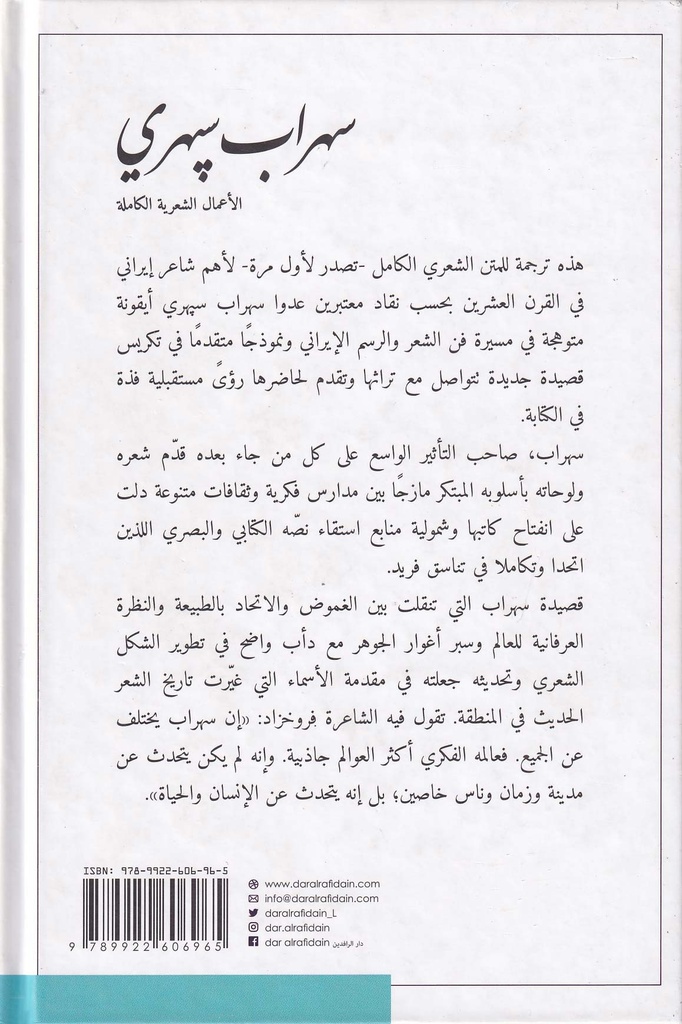 سهراب سپهري
الأعمال الشعرية الكاملة
هذه ترجمة للمتن الشعري الكامل -تصدر لأول مرة- لأهم شاعر إيراني
في القرن العشرين بحسب نقاد معتبرين عدوا سهراب سپهري أيقونة
متوهجة في مسيرة فن الشعر والرسم الإيراني ونموذجًا متقدمًا في تكريس
قصيدة جديدة تتواصل مع تراثها وتقدم لحاضرها رؤىً مستقبلية فذة
في الكتابة.
سهراب، صاحب التأثير الواسع على كل من جاء بعده قدّم شعره
ولوحاته بأسلوبه المبتكر مازجًا بين مدارس فكرية وثقافات متنوعة دلت
على انفتاح كاتبها وشمولية منابع استقاء نصّه الكتابي والبصري اللذين
اتحدا وتكاملا في تناسق فريد.
قصيدة سهراب التي تنقلت بين الغموض والاتحاد بالطبيعة والنظرة
العرفانية للعالم وسبر أغوار الجوهر مع دأب واضح في تطوير الشكل
الشعري وتحديثه جعلته في مقدمة الأسماء التي غيّرت تاريخ الشعر
الحديث في المنطقة. تقول فيه الشاعرة فروخزاد: «إن سهراب يختلف
عن الجميع. فعالمه الفكري أكثر العوالم جاذبية. وإنه لم يكن يتحدث عن
مدينة وزمان وناس خاصين؛ بل إنه يتحدث عن الإنسان والحياة».
ISBN: 978-9922-606-96-5
9 789922 606965
www.daralrafidain.com
info@daralrafidain.com
daralrafidain_L
dar.alrafidain
dar alrafidain دار الرافدين